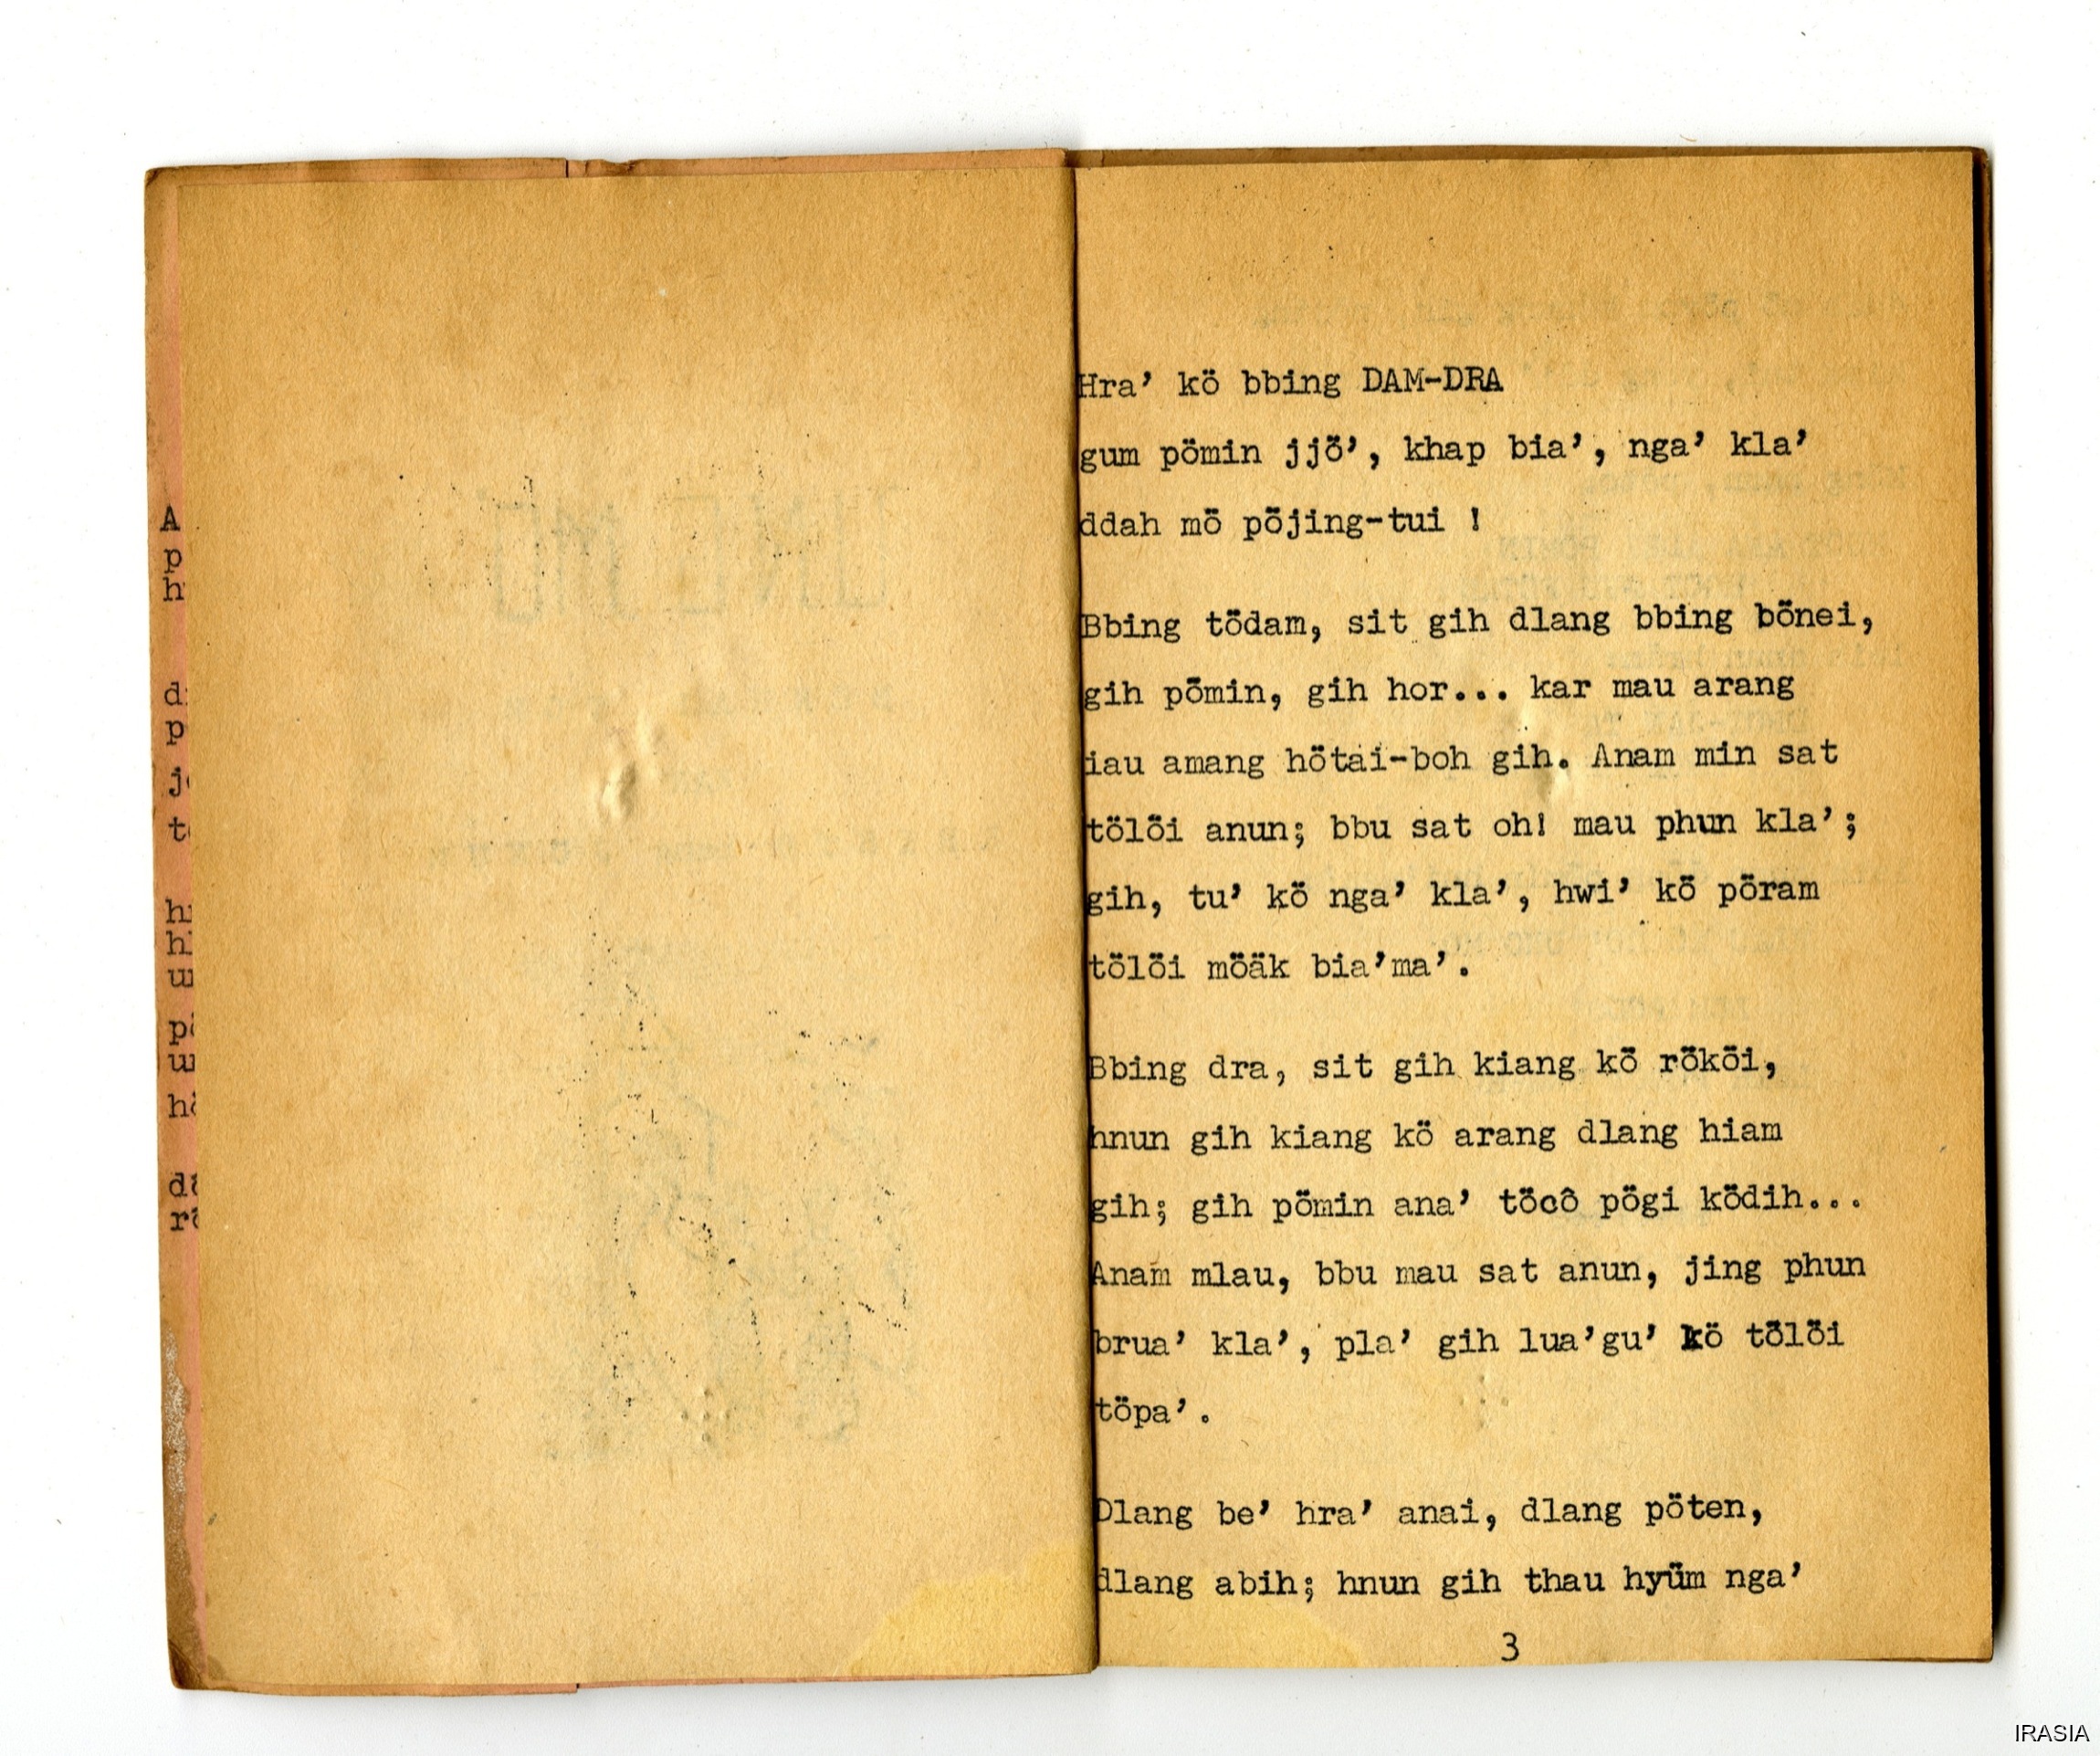 A
p
h
d
p
j
t
h
h
u
p
u
h
d
r
Hra’ kö bbing DAM-DRA
gum pömin jjö̆’, khap bia’, nga’ kla’
ddah mö pö̆jing-tui !
Bbing tö̆dam, sit gih dlang bbing bö̆nei,
gih pö̆min, gih hor... kar mau arang
iau amang hötai-boh gih. Anam min sat
tölö̆i anun; bbu sat oh! mau phun kla’;
gih, tu’ kö nga’ kla’, hwi’ kö̆ pö̆ram
tölö̆i möäk bia’ma’.
Bbing dra, sit gih kiang kö̆ rö̆kö̆i,
hnun gih kiang kö arang dlang hiam
gih; gih pö̆min ana’ tö̆cô pö̆gi kö̆dih...
Anam mlau, bbu mau sat anun, jing phun
brua’ kla’, pla’ gih lua’gu’ kö tö̆lö̆i
töpa’.
Dlang be’ hra’ anai, dlang pöten,
dlang abih; hnun gih thau hyüm nga’
3
IRASIA